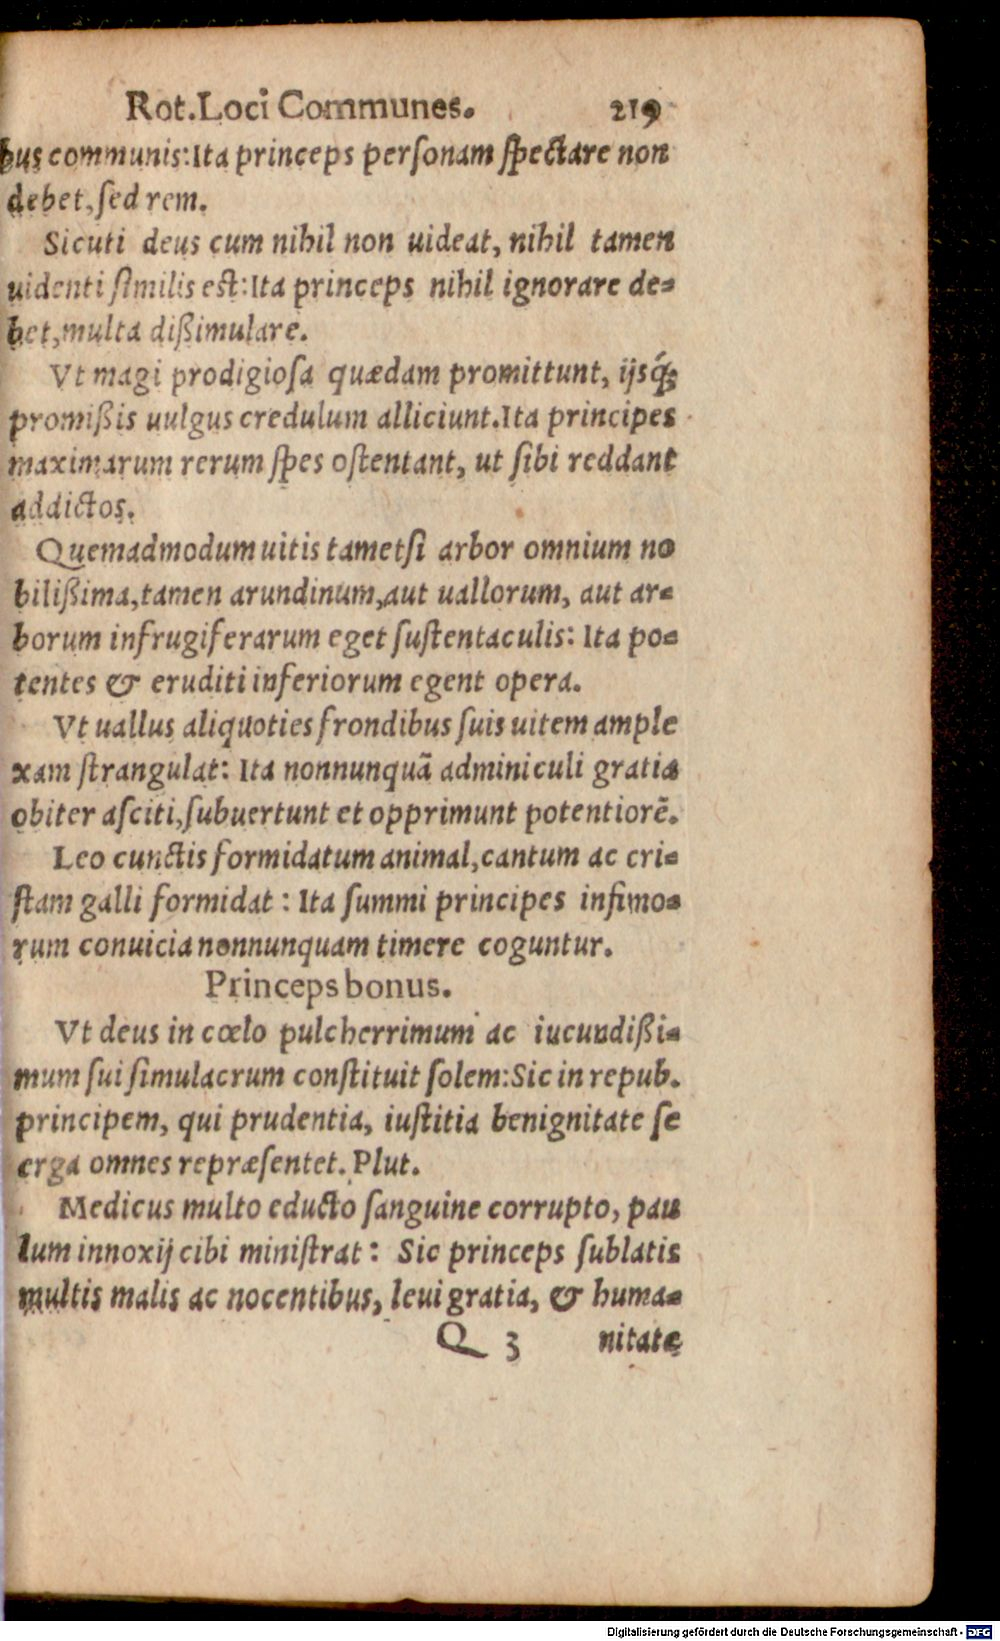 Rot. Loci Communes. 219
bus communis: Ita princeps personam spectare non
debet, sed rem.
Sicuti deus cum nihil non uideat, nihil tamen
uidenti similis est: Ita princeps nihil ignorare de-
bet, multa dißimulare.
Vt magi prodigiosa quædam promittunt, ijsq́;
promißis uulgus credulum alliciunt. Ita principes
maximarum rerum spes ostentant, ut sibi reddant
addictos.
Quemadmodum uitis tametsi arbor omnium no
bilißima, tamen arundinum, aut uallorum, aut ar-
borum infrugiferarum eget sustentaculis: Ita po-
tentes & eruditi inferiorum egent opera.
Vt uallus aliquoties frondibus suis uitem ample
xam strangulat: Ita nonnunquā adminiculi gratia
obiter asciti, subuertunt et opprimunt potentiorē.
Leo cunctis formidatum animal, cantum ac cri-
stam galli formidat: Ita summi principes infimo-
rum conuicia nonnunquam timere coguntur.
Princeps bonus.
Vt deus in cœlo pulcherrimum ac iucundißi-
mum sui simulacrum constituit solem: Sic in repub.
principem, qui prudentia, iustitia benignitate se
erga omnes repræsentet. Plut.
Medicus multo educto sanguine corrupto, pau
lum innoxij cibi ministrat: Sic princeps sublatis
multis malis ac nocentibus, leui gratia, & huma-
Q 3 nitate
Digitalisierung gefördert durch die Deutsche Forschungsgemeinschaft - DFG